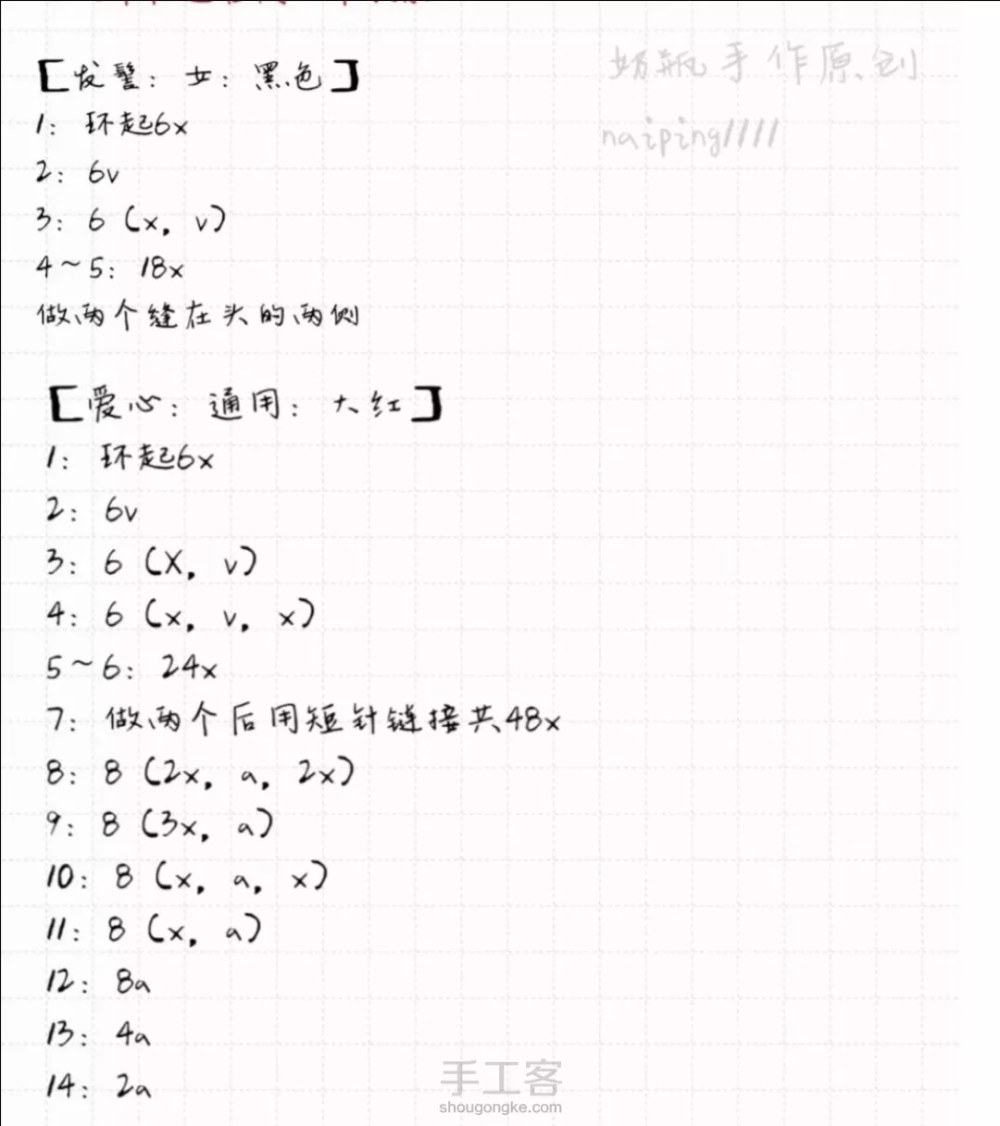 [发髻: 女: 黑色]
奶瓶手作原创
naiping1111
1: 环起6x
2: 6v
3: 6 (x, v)
4~5: 18x
做两个缝在头的两侧
[爱心: 通用: 大红]
1: 环起6x
2: 6v
3: 6 (X, v)
4: 6 (x, v, x)
5~6: 24x
7: 做两个后用短针链接共48x
8: 8 (2x, a, 2x)
9: 8 (3x, a)
10: 8 (x, a, x)
11: 8 (x, a)
12: 8a
13: 4a
14: 2a
手工客
shougongke.com